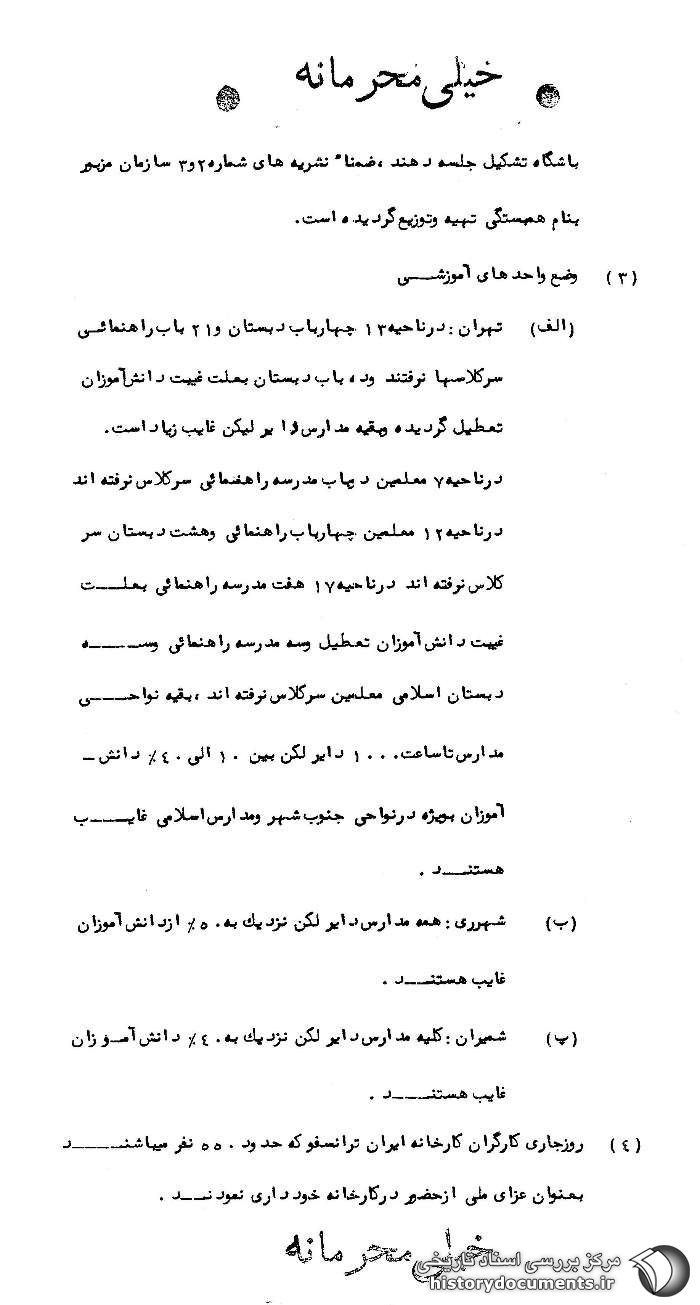 خیلی محرمانه
باشگاه تشکیل جلسه دهند ،ضمناً نشریه های شماره۲و۳ سازمان مزبور
بنام همبستگی تهیه وتوزیع گردیده است.
(۳) وضع واحدهای آموزشـــی
(الف) تهران : درناحیه۱۳ چهارباب دبستان و۲۱ باب راهنمائـی
سرکلاسها نرفتند وده باب دبستان بعلت غیبت دانش‌آموزان
تعطیل گردیده وبقیه مدارس دایر لیکن غایب زیاد است.
درناحیه۷ معلمین باب مدرسه راهنمائی سرکلاس نرفته اند
درناحیه۱۲ معلمین چهارباب راهنمائی وهشت دبستان سر
کلاس نرفته اند درناحیه۱۷ هفت مدرسه راهنمائی بعلــت
غیبت دانش آموزان تعطیل وسه مدرسه راهنمائی وســـه
دبستان اسلامی معلمین سرکلاس نرفته اند ،بقیه نواحـــی
مدارس تاساعت ۱۰۰۰ دایر لکن بین ۱۰ الی ۴۰٪ دانش ـ
آموزان بویژه درنواحی جنوب شهر ومدارس اسلامی غایــب
هستنــد .
(ب) شهرری : همه مدارس دایر لکن نزدیك به ۵۰٪ ازدانش آموزان
غایب هستنــد .
(پ) شمیران : کلیه مدارس دایر لکن نزدیك به ۴۰٪ دانش آمـوزان
غایب هستنــد .
(۴) روزجاری کارگران کارخانه ایران ترانسفو که حدود ۵۵۰ نفر میباشنـــد
بعنوان عزای ملی ازحضور درکارخانه خودداری نمودنــد .
خیلی محرمانه
مرکز بررسی اسناد تاریخی
historydocuments.ir